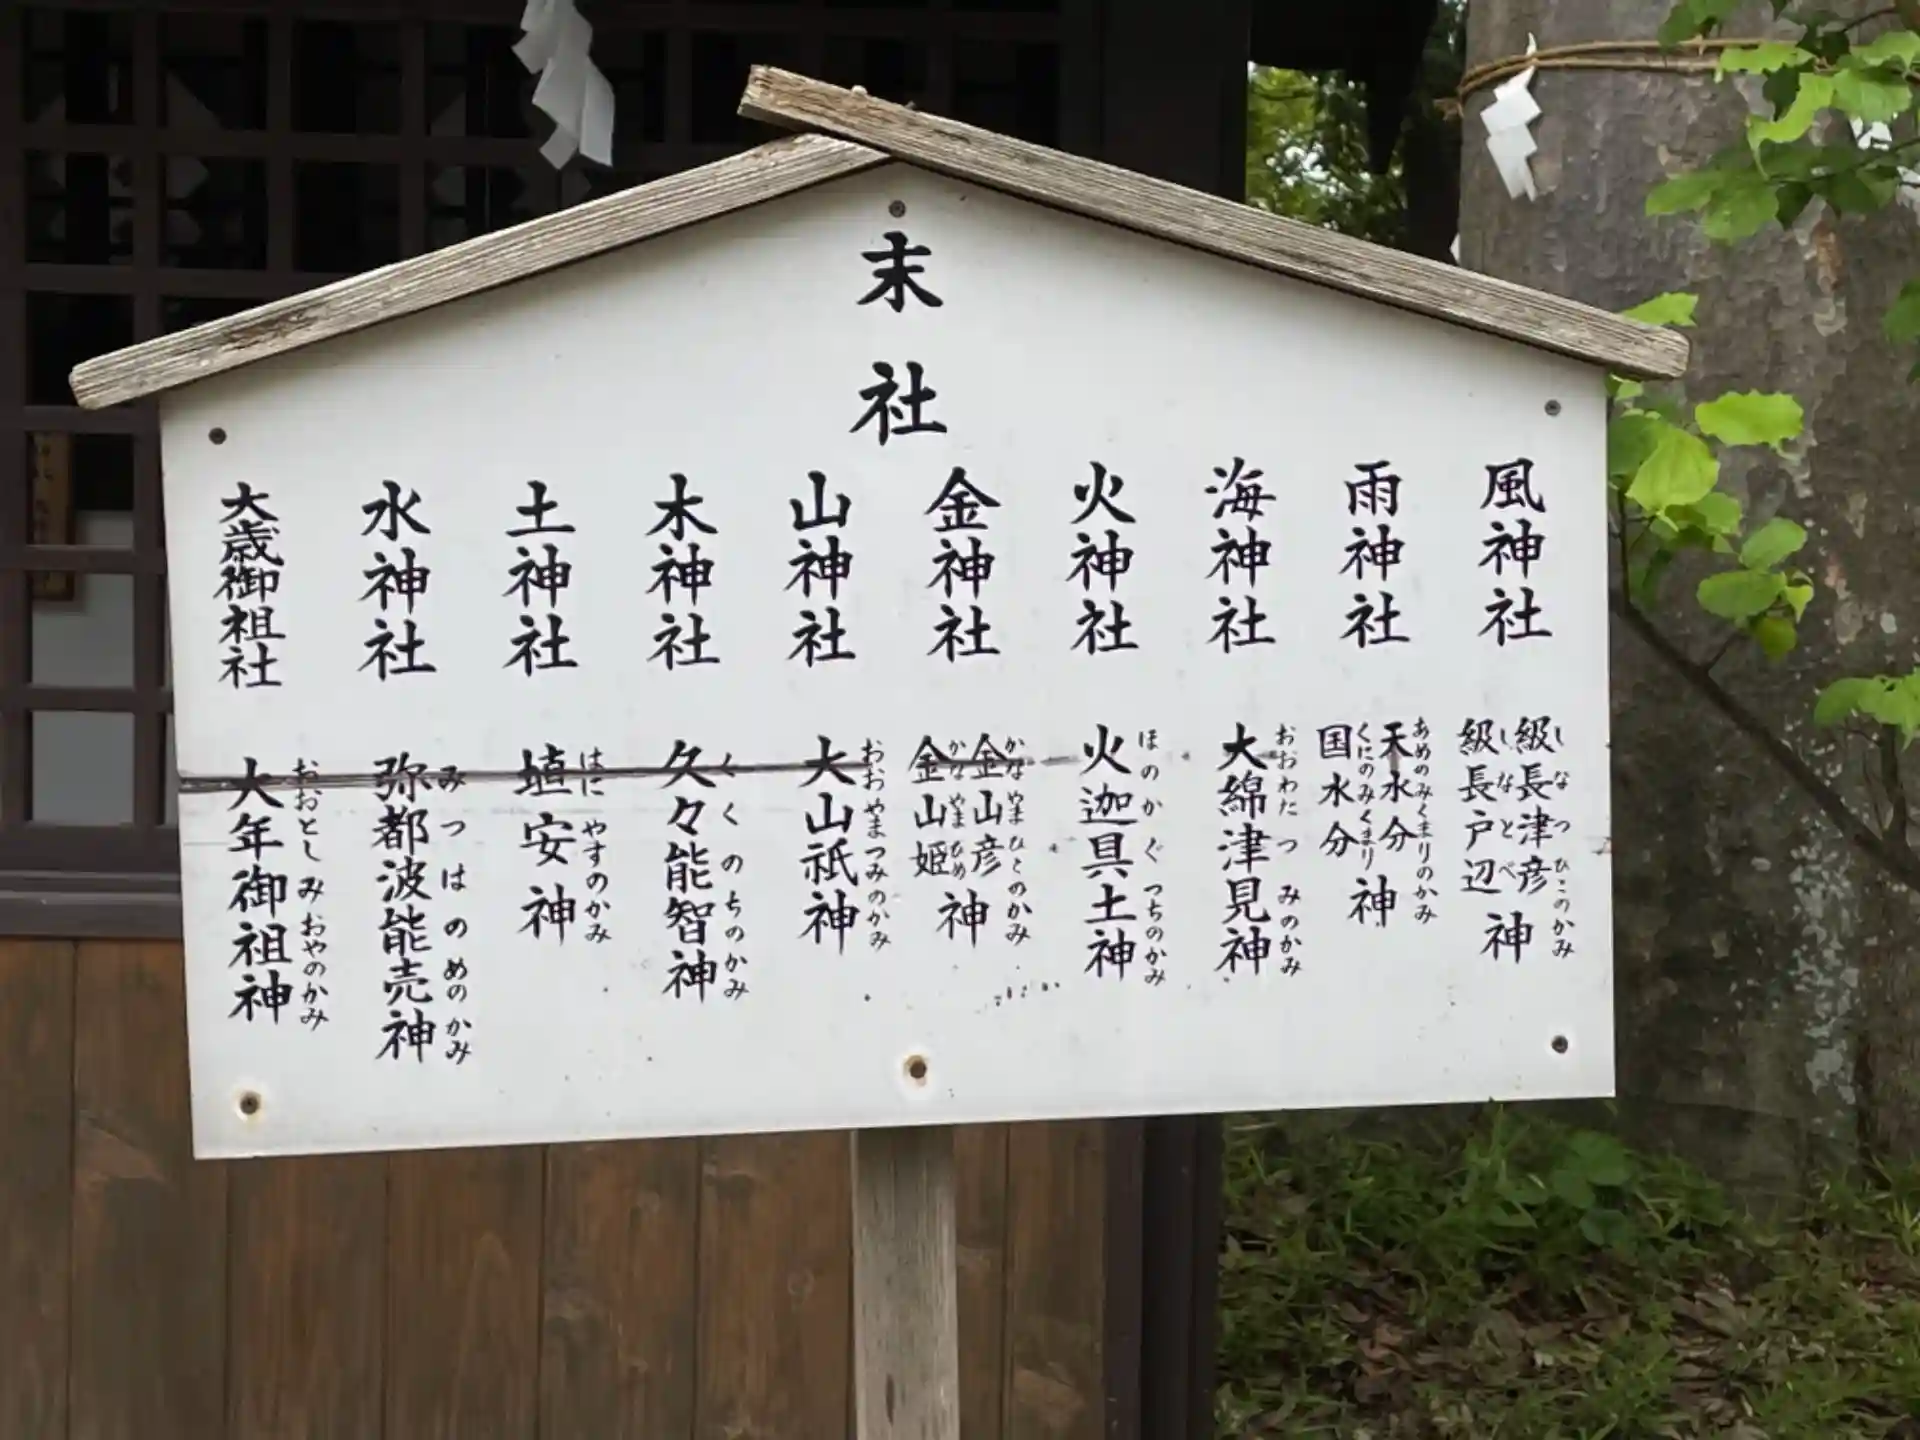 末社
風神社
級長津彦
しなつひこのかみ
級長戸辺
しなとべ
神
雨神社
天水分
あめのみくまりのかみ
国水分
くにのみくまり
神
海神社
大綿津見神
おおわたつみのかみ
火神社
火迦具土神
ほのかぐつちのかみ
金神社
金山彦
かなやまひこのかみ
金山姫
かなやまひめ
神
山神社
大山祇神
おおやまつみのかみ
木神社
久々能智神
くくのちのかみ
土神社
埴安神
はにやすのかみ
水神社
弥都波能売神
みつはのめのかみ
大歳御祖社
大年御祖神
おおとしみおやのかみ